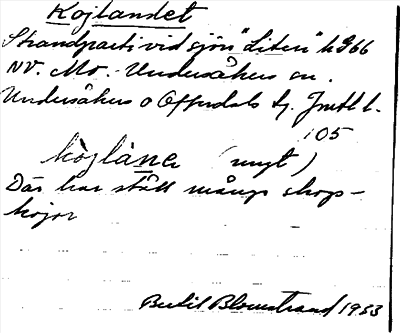 Kojlandet
Strandparti vid sjön "Liten" h 366
NV. Mo. Undersåkers sn.
Undersåkers o Offerdals tg. Jmtl l.
105
kòglàne (nugt)
Där har stått många skogs-
kojor
Bertil Blomstrand 1933